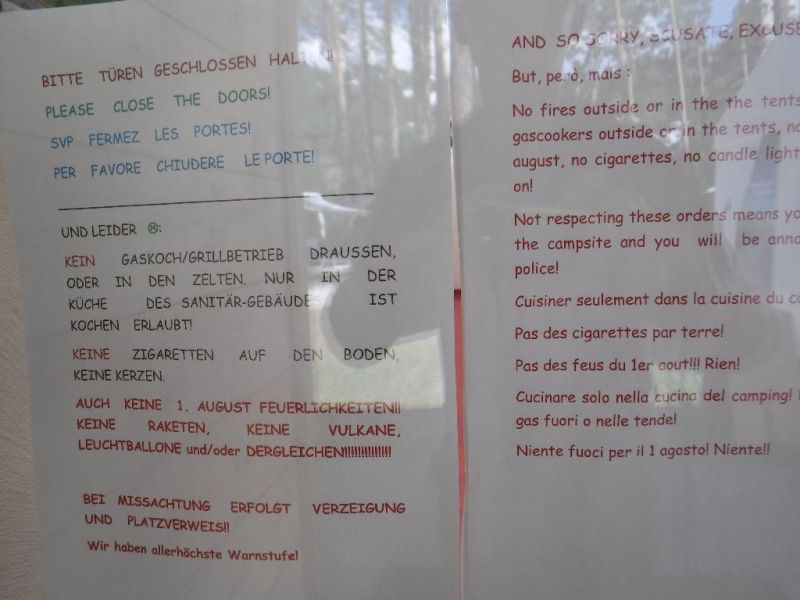 BITTE TÜREN GESCHLOSSEN HALTEN!!
PLEASE CLOSE THE DOORS!
SVP FERMEZ LES PORTES!
PER FAVORE CHIUDERE LE PORTE!
UND LEIDER ☹:
KEIN GASKOCH/GRILLBETRIEB DRAUSSEN,
ODER IN DEN ZELTEN. NUR IN DER
KÜCHE DES SANITÄR-GEBÄUDES IST
KOCHEN ERLAUBT!
KEINE ZIGARETTEN AUF DEN BODEN,
KEINE KERZEN.
AUCH KEINE 1. AUGUST FEUERLICHKEITEN!!
KEINE RAKETEN, KEINE VULKANE,
LEUCHTBALLONE und/oder DERGLEICHEN!!!!!!!!!!!!!!
BEI MISSACHTUNG ERFOLGT VERZEIGUNG
UND PLATZVERWEIS!!
Wir haben allerhöchste Warnstufe!
AND SO SORRY, SCUSATE, EXCUSE
But, però, mais :
No fires outside or in the the tents
gascookers outside or in the tents, no
august, no cigarettes, no candle light
on!
Not respecting these orders means yo
the campsite and you will be anno
police!
Cuisiner seulement dans la cuisine du ca
Pas des cigarettes par terre!
Pas des feus du 1er aout!!! Rien!
Cucinare solo nella cucina del camping!
gas fuori o nelle tende!
Niente fuoci per il 1 agosto! Niente!!